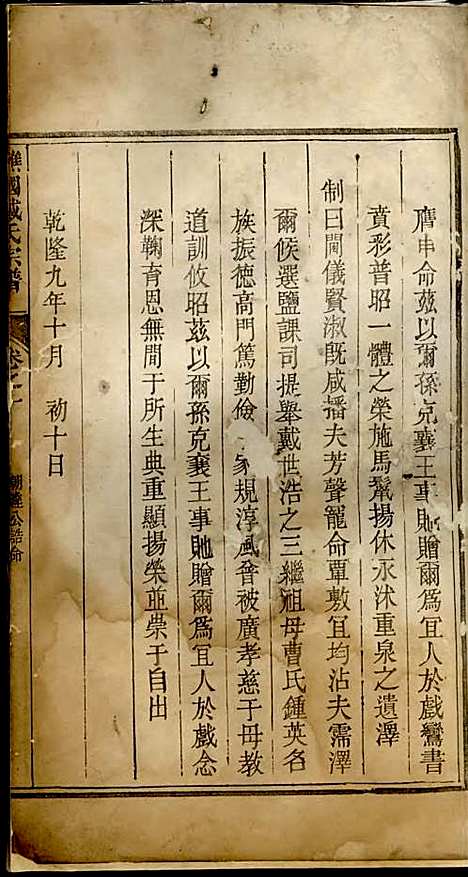 膺申命兹以爾孫克襄王事貤贈爾爲宜人於戲鸞書
賁彩普昭一體之榮施馬鬣揚休永沐重泉之遺澤
制曰閫儀賢淑旣咸播夫芳聲寵命覃敷宜均沾夫霈澤
爾候選鹽課司提舉戴世浩之三繼祖母曹氏鍾英名
族振德高門篤勤儉 家規淳風普被廣孝慈于母教
道訓攸昭兹以爾孫克襄王事貤贈爾爲宜人於戲念
深鞠育恩無間于所生典重顯揚榮並崇于自出
乾隆九年十月 初十日
譙國戴氏宗譜 卷之一 公誥命